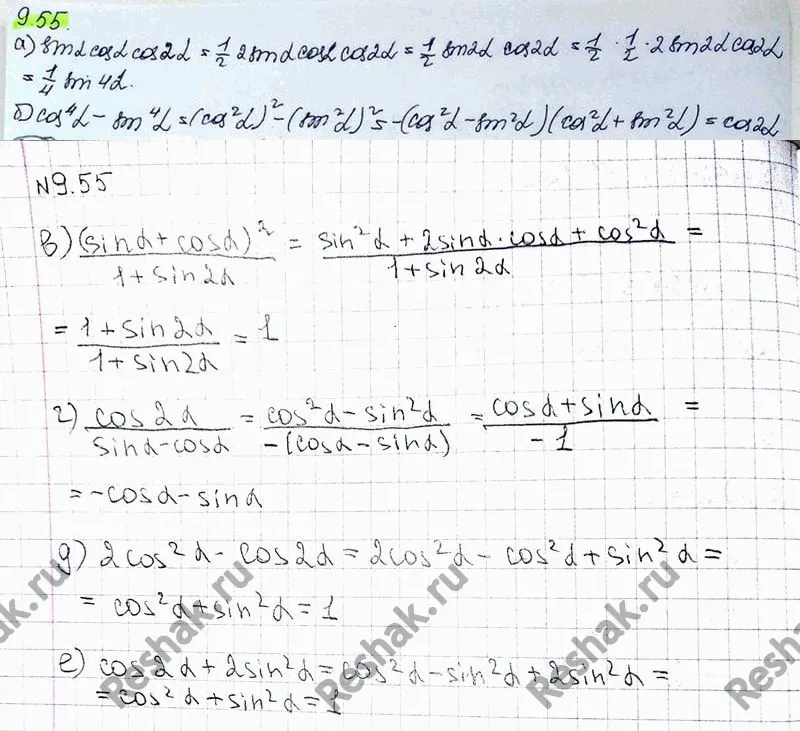 9.55.
а) sinα cosα cos2α = 1/2 2sinα cosα cos2α = 1/2 sin2α cos2α = 1/2 · 1/2 · 2 sin2α cos2α
= 1/4 sin 4α.
б) cos⁴α - sin⁴α = (cos²α)² - (sin²α)² = (cos²α - sin²α)(cos²α + sin²α) = cos2α
N9.55
в) (sinα + cosα)² / 1 + sin2α = sin²α + 2sinα · cosα + cos²α / 1 + sin2α =
= 1 + sin2α / 1 + sin2α = 1
г) cos2α / sinα - cosα = cos²α - sin²α / -(cosα - sinα) = cosα + sinα / -1 =
= -cosα - sinα
д) 2cos²α - cos2α = 2cos²α - cos²α + sin²α =
= cos²α + sin²α = 1
е) cos2α + 2sin²α = cos²α - sin²α + 2sin²α =
= cos²α + sin²α = 1
Reshak.ru
Reshak.ru
Reshak.ru
Reshak.ru